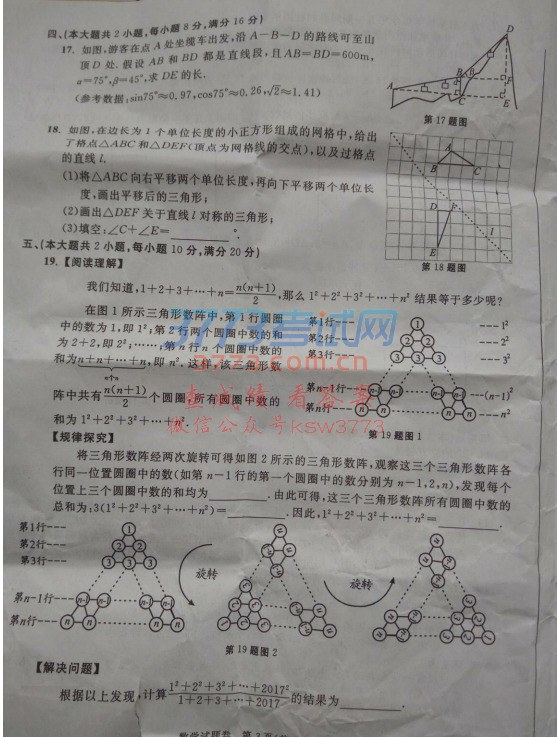 四、(本大题共2小题,每小题8分,满分16分)
17. 如图,游客在点A处坐缆车出发,沿A-B-D的路线可至山
顶D处.假设AB和BD都是直线段,且AB=BD=600m,
α=75°,β=45°,求DE的长.
(参考数据:sin75°≈0.97,cos75°≈0.26,√2≈1.41)
D
B
β
F
A
α
C
E
第17题图
18. 如图,在边长为1个单位长度的小正方形组成的网格中,给出
了格点△ABC和△DEF(顶点为网格线的交点),以及过格点
的直线l.
(1)将△ABC向右平移两个单位长度,再向下平移两个单位长
度,画出平移后的三角形;
(2)画出△DEF关于直线l对称的三角形;
(3)填空:∠C+∠E=______°.
A
B
C
D
F
E
l
第18题图
五、(本大题共2小题,每小题10分,满分20分)
19.【阅读理解】
我们知道,1+2+3+…+n=n(n+1)/2,那么1²+2²+3²+…+n²结果等于多少呢?
在图1所示三角形数阵中,第1行圆圈
中的数为1,即1²;第2行两个圆圈中数的和
为2+2,即2²;……;第n行n个圆圈中数的
和为n+n+…+n,即n².这样,该三角形数
阵中共有n(n+1)/2个圆圈,所有圆圈中数的
和为1²+2²+3²+…+n².
第1行 1 1²
第2行 2 2 2²
第3行 3 3 3 3²
第n-1行 n-1 n-1 n-1 n-1 (n-1)²
第n行 n n n n n²
第19题图1
3773考试网
3773.com
查成绩 看答案
微信公众号ksw3773
【规律探究】
将三角形数阵经两次旋转可得如图2所示的三角形数阵,观察这三个三角形数阵各
行同一位置圆圈中的数(如第n-1行的第一个圆圈中的数分别为n-1,2,n),发现每个
位置上三个圆圈中数的和均为______.由此可得,这三个三角形数阵所有圆圈中数的
总和为:3(1²+2²+3²+…+n²)=______.因此,1²+2²+3²+…+n²=______.
第1行--- 1
第2行--- 2 2
第3行--- 3 3 3
第n-1行--- n-1 n-1 n-1 n-1
第n行--- n n n n
旋转
旋转
第19题图2
【解决问题】
根据以上发现,计算(1²+2²+3²+…+2017²)/(1+2+3+…+2017)的结果为______.